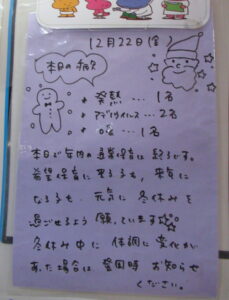 12月22日(金)
本日の病欠
♪ 発熱 … 1名
♪ アデノウイルス … 2名
♪ … 1名
本日で年内の通常保育は終了です。
希望保育に来る子も、来年に
なる子も、元気に冬休みを
過ごせるよう願っています☆☆
冬休み中に体調に変化が
あった場合は、登園時お知らせ
ください。